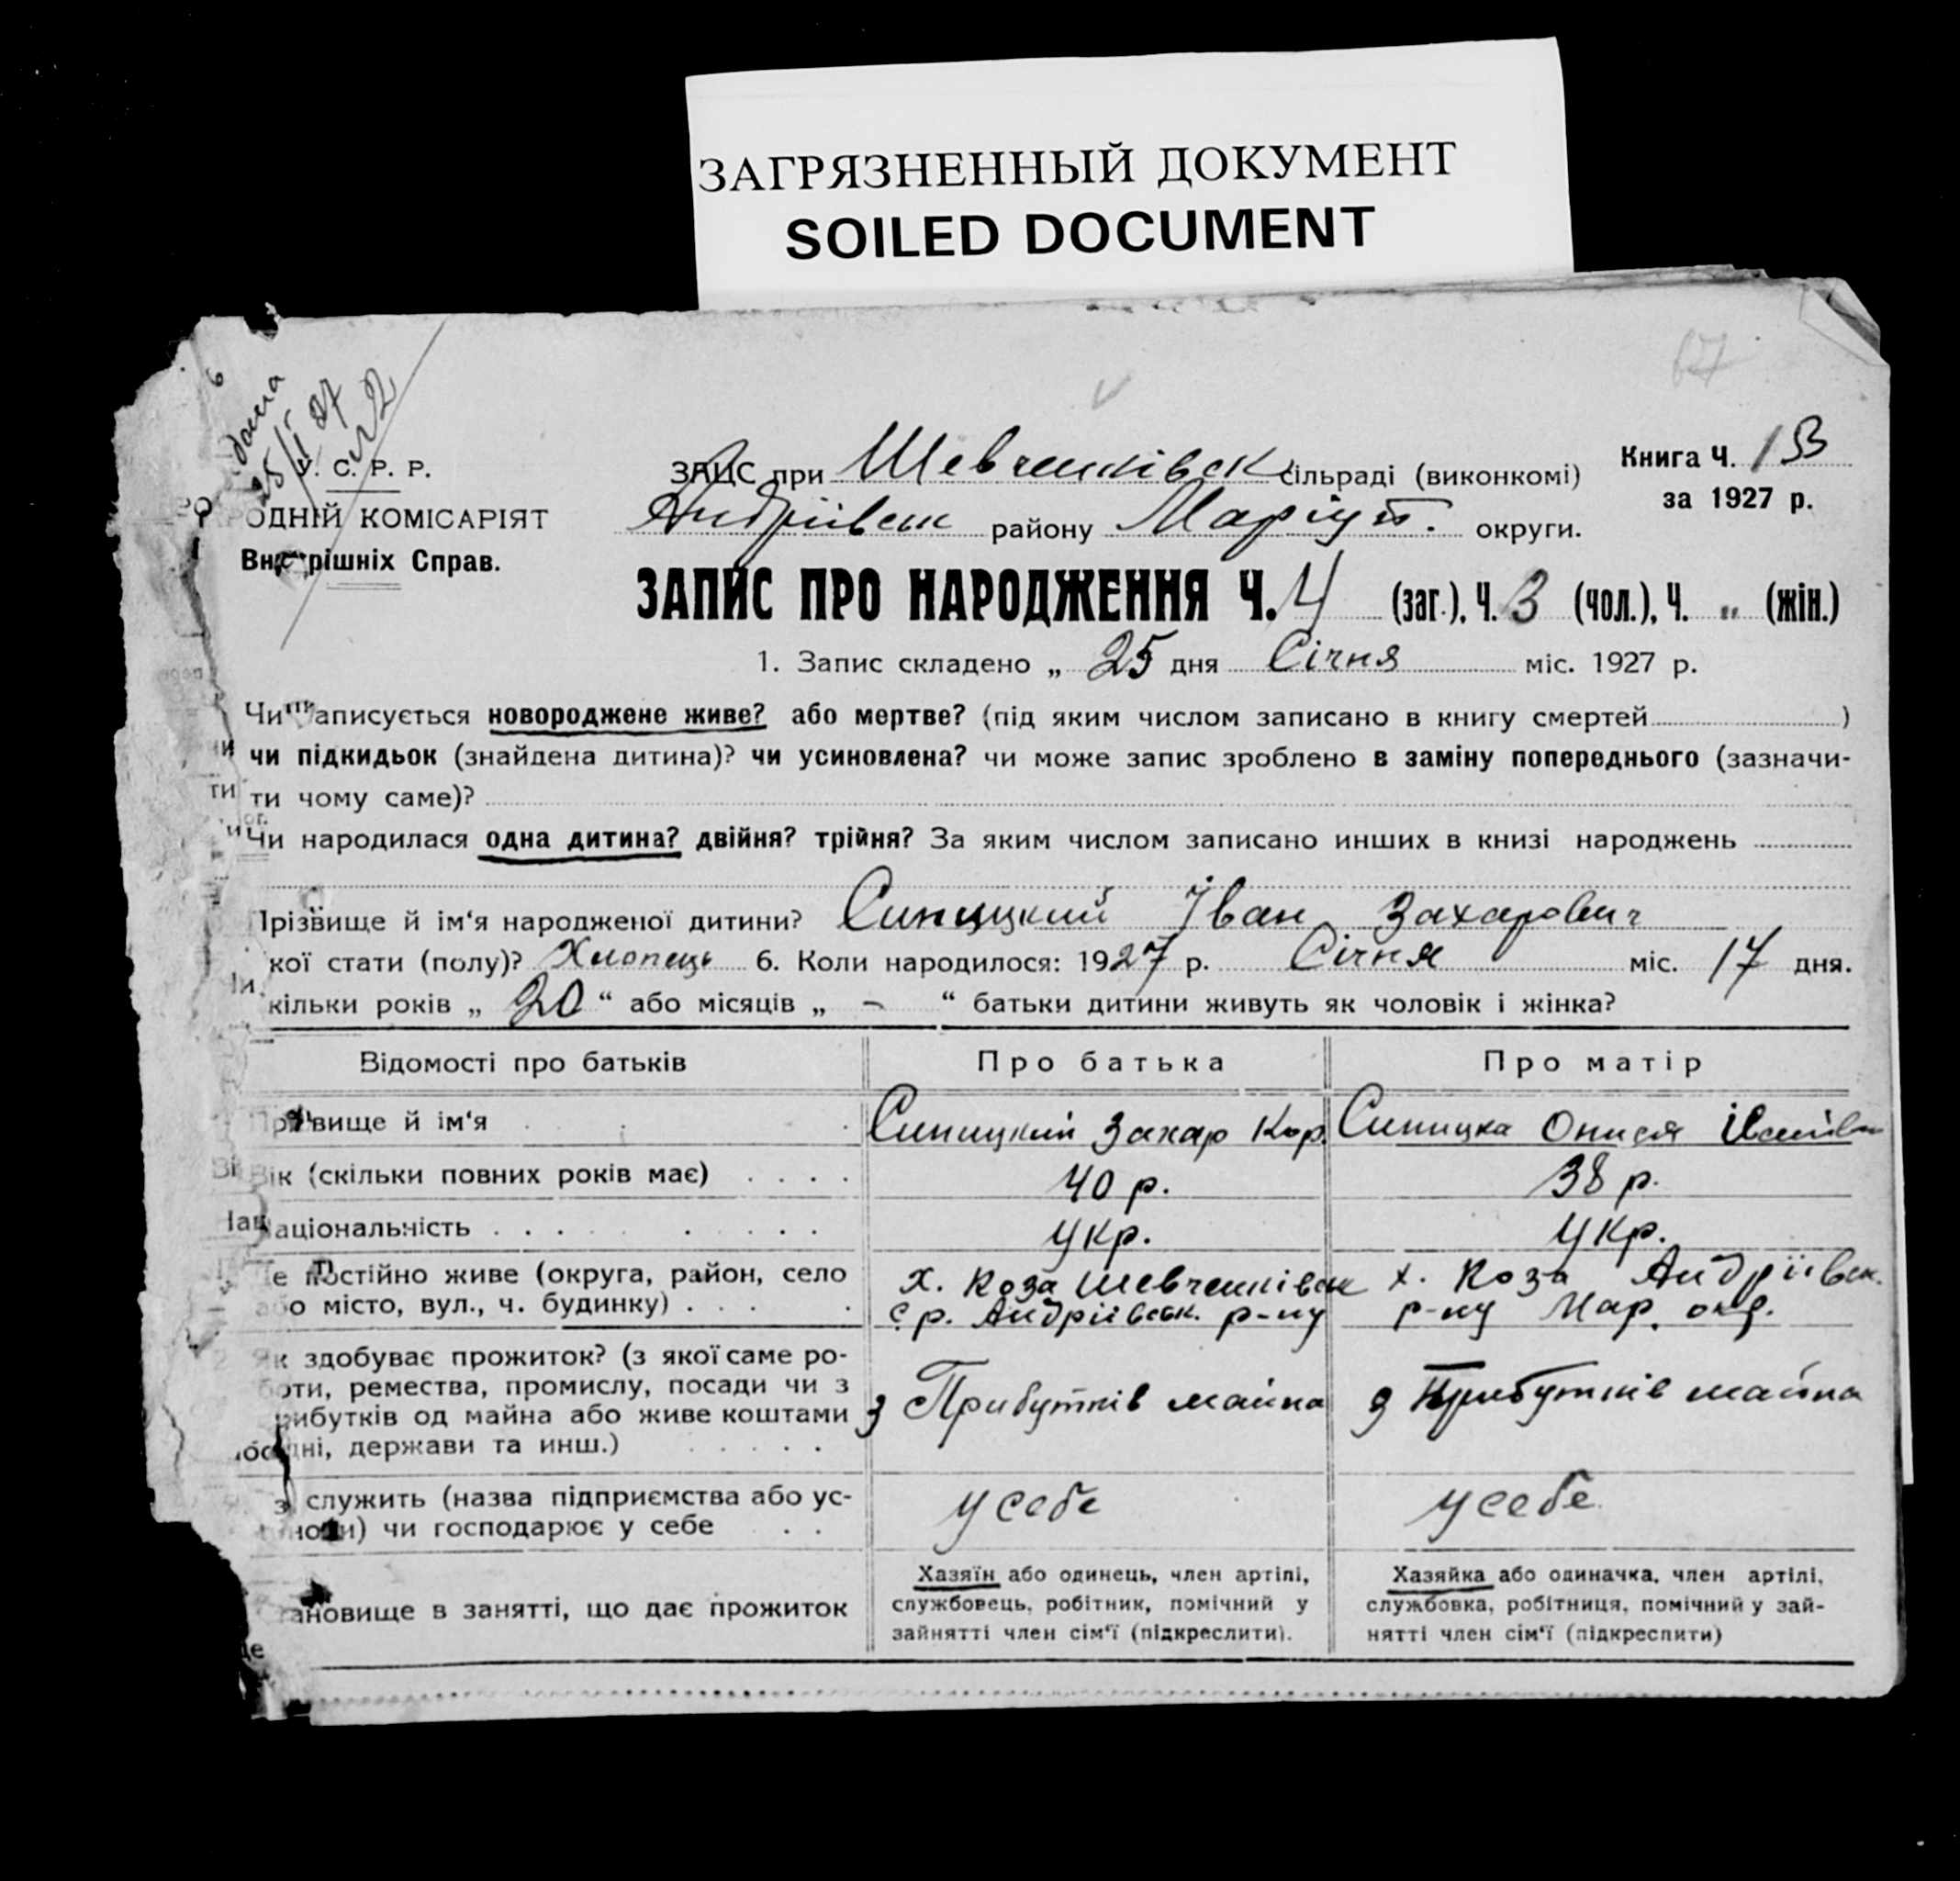 ЗАГРЯЗНЕННЫЙ ДОКУМЕНТ
SOILED DOCUMENT
У. С. Р. Р.
ОДНІЙ КОМІСАРІЯТ
Внутрішніх Справ.
ЗАЦС при Шевченківск сільраді (виконкомі)
Андріївськ району Маріуп. округи.
Книга Ч. 1
за 1927 р.
ЗАПИС ПРО НАРОДЖЕННЯ Ч. 4 (заг.), Ч. 3 (чол.), Ч. „ (жін.)
1. Запис складено „ 25 дня Січня міс. 1927 р.
Чи записується новороджене живе? або мертве? (під яким числом записано в книгу смертей )
чи підкидьок (знайдена дитина)? чи усиновлена? чи може запис зроблено в заміну попереднього (зазначи-
ти чому саме)?
Чи народилася одна дитина? двійня? трійня? За яким числом записано инших в книзі народжень
Прізвище й ім‘я народженої дитини? Синицкий Іван Захарович
кої стати (полу)? Хлопець 6. Коли народилося: 1927 р. Січня міс. 17 дня.
кільки років „ 20 “ або місяців „ – “ батьки дитини живуть як чоловік і жінка?
Відомості про батьків
Про батька
Про матір
Прізвище й ім‘я
Синицкий Захар Кор.
Синицка Онися
Вік (скільки повних років має)
40 р.
38 р.
аціональність
Укр.
Укр.
е постійно живе (округа, район, село
або місто, вул., ч. будинку)
х. Коза Шевченківськ
с р. Андріївськ. р-ну
х. Коза Андріївськ.
р-ну Мар. окр.
Як здобуває прожиток? (з якої саме ро-
боти, ремества, промислу, посади чи з
рибутків од майна або живе коштами
дні, держави та инш.)
з Прибутків майна
з Прибутків майна
служить (назва підприємства або ус-
нови) чи господарює у себе
у себе
у себе
ановище в занятті, що дає прожиток
Хазяїн або одинець, член артілі,
службовець, робітник, помічний у
зайнятті член сім‘ї (підкреслити).
Хазяйка або одиначка, член артілі,
службовка, робітниця, помічний у зай-
нятті член сім‘ї (підкреслити)